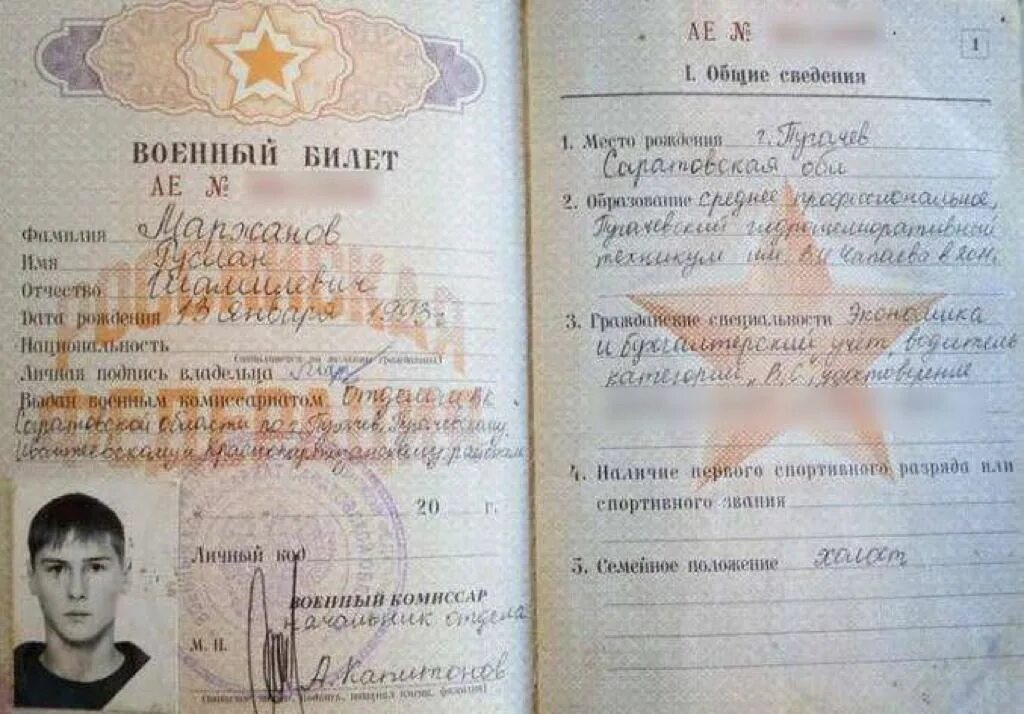 ВОЕННЫЙ БИЛЕТ
АЕ №
Фамилия Маржанов
Имя Руслан
Отчество Шамилевич
Дата рождения 13 января 1993 г.
Национальность
Личная подпись владельца
Выдан военным комиссариатом Отделом ВК
Саратовской области по г. Пугачев, Пугачевскому,
Ивантеевскому и Краснопартизанскому районам
20 г.
Личный код
ВОЕННЫЙ КОМИССАР
начальник отдела
М. П.
А. Капитонов
АЕ №
1
I. Общие сведения
1. Место рождения г. Пугачев
Саратовская обл
2. Образование среднее профессиональное,
Пугачевский гидромелиоративный
техникум им. В.И Чапаева
3. Гражданские специальности Экономика
и бухгалтерский учет, водитель
категории „В, С", удостоверение
4. Наличие первого спортивного разряда или
спортивного звания
5. Семейное положение холост